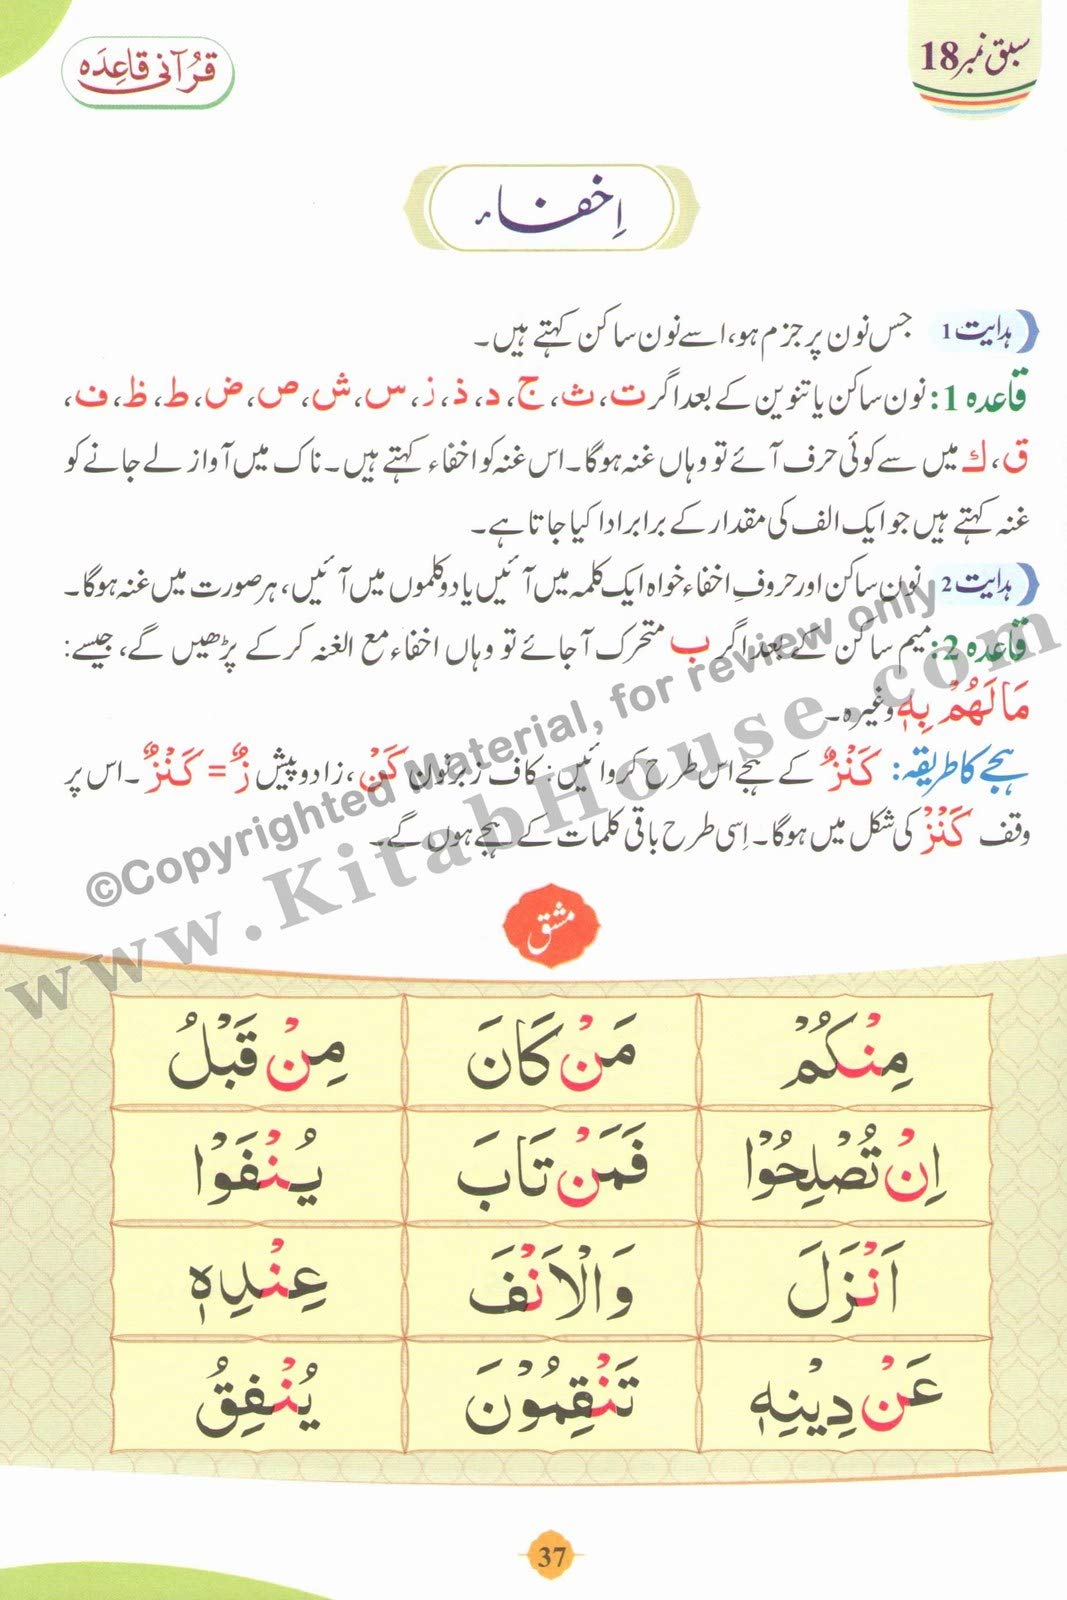 سبق نمبر 18
قرآنی قاعدہ
اِخفاء
ہدایت 1 جس نون پر جزم ہو، اسے نون ساکن کہتے ہیں۔
قاعدہ 1: نون ساکن یا تنوین کے بعد اگر ت، ث، ج، د، ذ، ز، س، ش، ص، ض، ط، ظ، ف،
ق، ك میں سے کوئی حرف آئے تو وہاں غنہ ہوگا۔ اس غنہ کو اخفاء کہتے ہیں۔ ناک میں آواز لے جانے کو
غنہ کہتے ہیں جو ایک الف کی مقدار کے برابر ادا کیا جاتا ہے۔
ہدایت 2 نون ساکن اور حروفِ اخفاء خواہ ایک کلمہ میں آئیں یا دو کلموں میں آئیں، ہر صورت میں غنہ ہوگا۔
قاعدہ 2: میم ساکن کے بعد اگر ب متحرک آجائے تو وہاں اخفاء مع الغنہ کرکے پڑھیں گے، جیسے:
مَالَهُمْ بِهٖ وغیرہ۔
ہجے کا طریقہ: كَنْزٌ کے ہجے اس طرح کروائیں: کاف زبر نون كَنْ، زا دو پیش زٌ = كَنْزٌ۔ اس پر
وقف كَنْزْ کی شکل میں ہوگا۔ اِسی طرح باقی کلمات کے ہجے ہوں گے۔
©Copyrighted Material, for review only
www.KitabHouse.com
مشق
مِنْكُمْ مَنْ كَانَ مِنْ قَبْلُ
اِنْ تُصْلِحُوْا فَمَنْ تَابَ يُنْفَوْا
اَنْزَلَ وَالْاَنْفَ عِنْدِهٖ
عَنْ دِيْنِهٖ تَنْقِمُوْنَ يُنْفِقُ
37